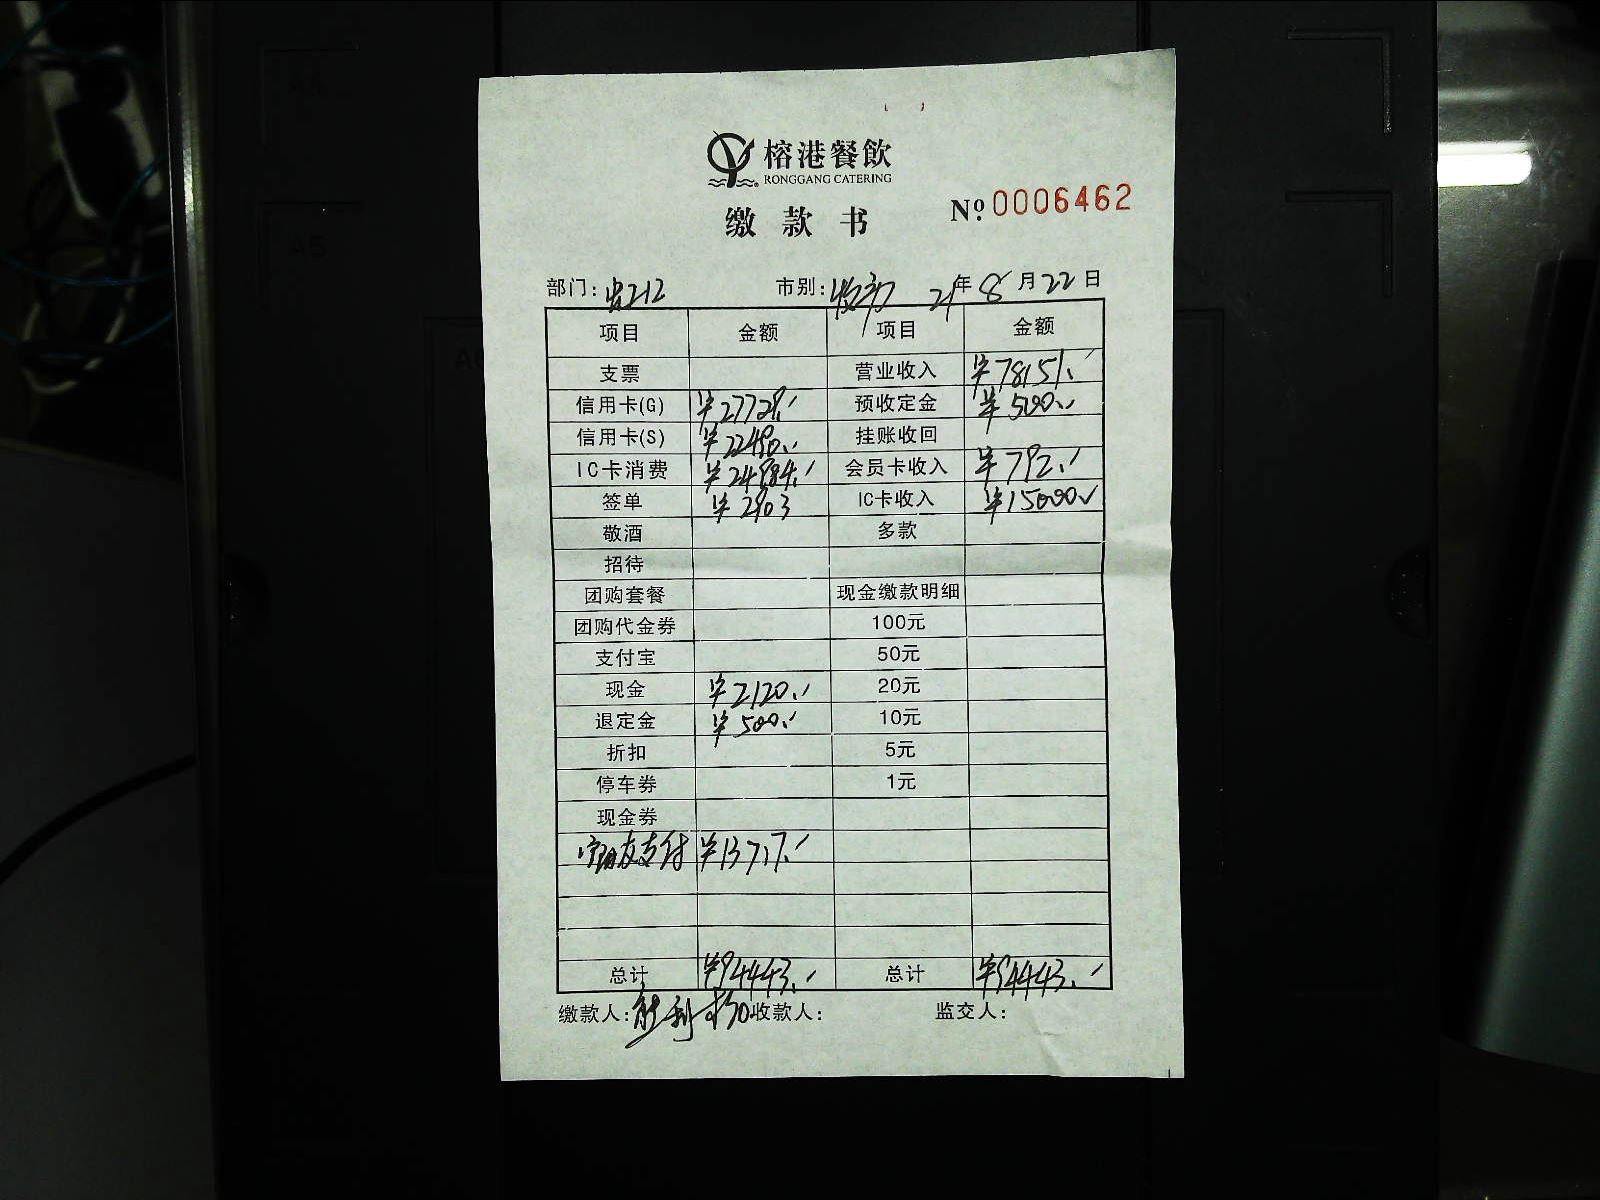 榕港餐飲
RONGGANG CATERING
缴款书 Nº 0006462
部门: 市别: 21年8月22日
项目 金额 项目 金额
支票 营业收入 ¥78151.-
信用卡(G) ¥27729.- 预收定金 ¥500.-
信用卡(S) ¥22490.- 挂账收回
IC卡消费 ¥24984.- 会员卡收入 ¥792.-
签单 ¥2903 IC卡收入 ¥15000.-
敬酒 多款
招待
团购套餐 现金缴款明细
团购代金券 100元
支付宝 50元
现金 ¥2120.- 20元
退定金 ¥500.- 10元
折扣 5元
停车券 1元
现金券
支付 ¥13717.-
总计 ¥94443.- 总计 ¥94443.-
缴款人: 收款人: 监交人: